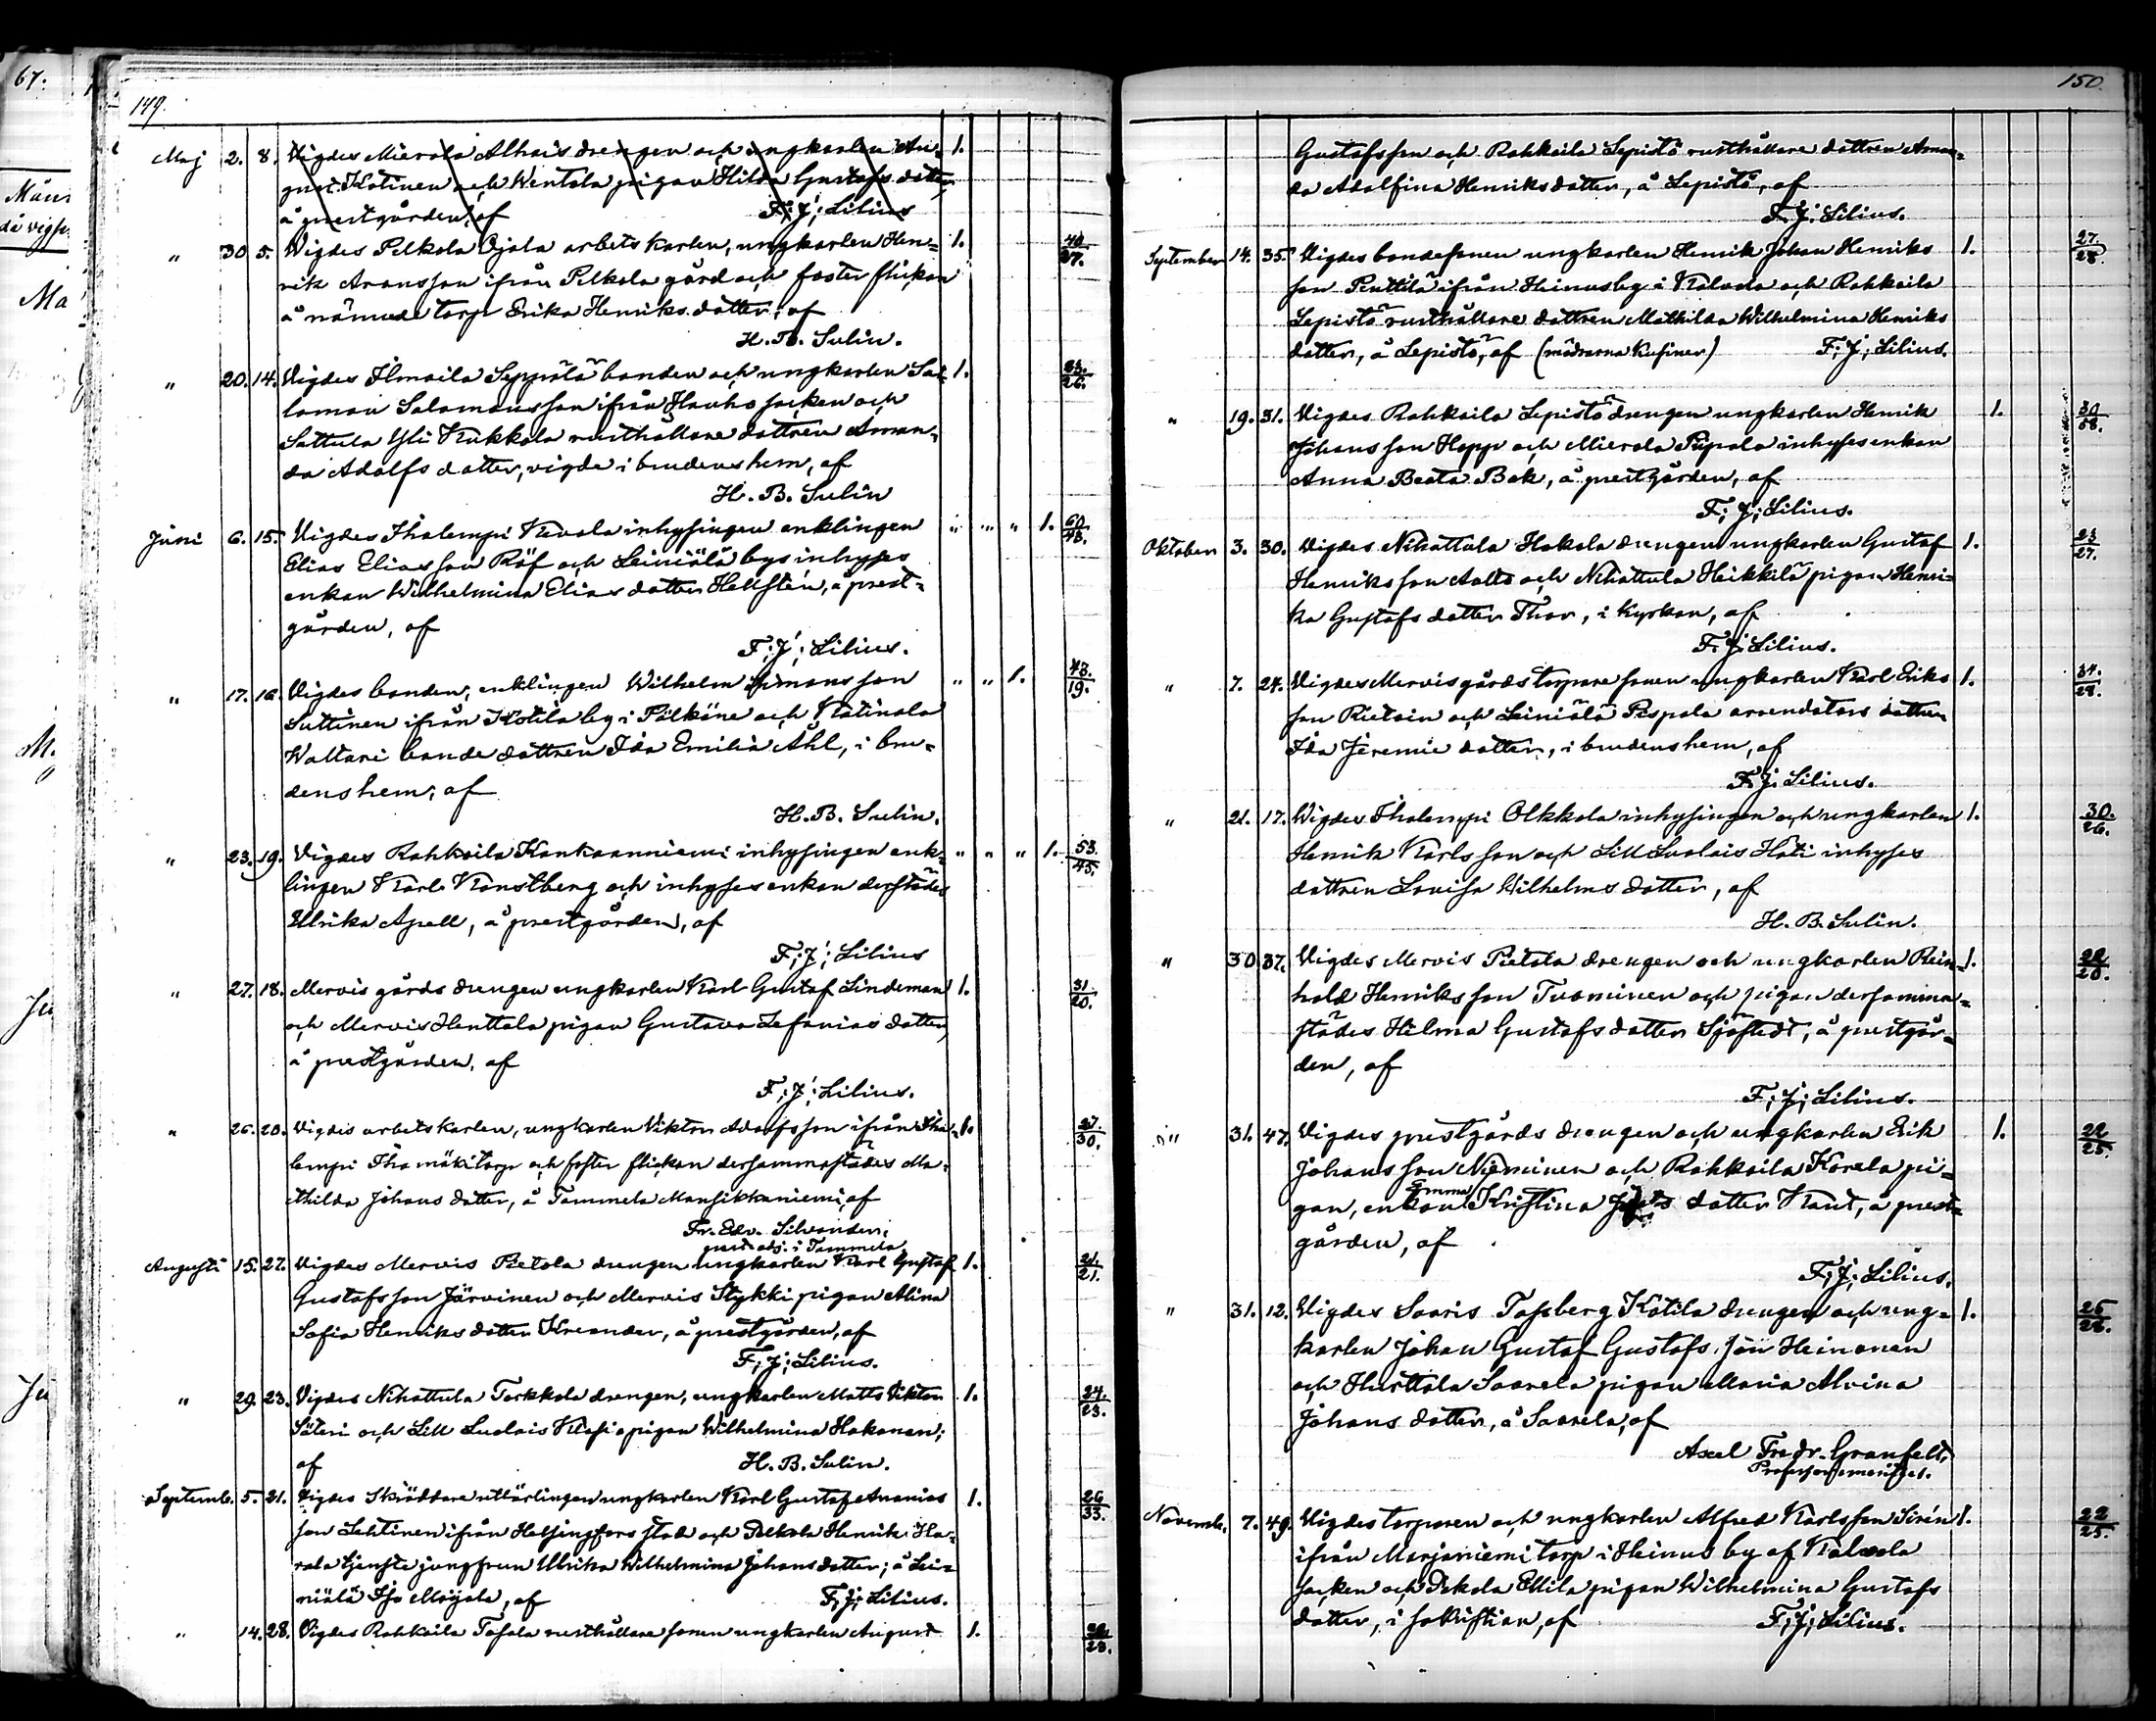 67.
149.
Maj 2. 8. Vigdes Mierola Alhais drengen och ungkarlen Au- 1.
gust Kotinen och Wentola pigan Hilda Gustafs dotter,
å prestgården, af F; J; Lilius
" 30 5. Vigdes Pelkola Ojala arbets karlen, ungkarlen Hen= 1. 40/27.
rik Aronsson ifrån Pelkola gård och foster flickan
å nämnde torp Erika Henriks dotter; af
H. B. Sulin.
" 20. 14. Vigdes Ilmoila Seppälä bonden och ungkarlen Sa- 1. 23./26.
lomon Salomonsson ifrån Hauho socken och
Sattula Yli Kukkola rusthållare dottren Aman-
da Adolfs dotter, vigde i brudens hem, af
H. B. Sulin
Juni 6. 15. Vigdes Ihalempi Kevola inhysingen enklingen " " " 1. 60/48.
Elias Eliasson Röf och Leiniälä bys inhyses
enkan Wilhelmina Elias dotter Hellstén, å prest-
gården, af
F; J; Lilius.
" 17. 16. Vigdes bonden, enklingen Wilhelm Simonsson " " 1. 43./19.
Suttinen ifrån Kotila by i Pälkäne och Katinala
Wattari bonde dottren Ida Emilia Ahl, i bru-
dens hem; af
H. B. Sulin.
" 23. 19. Vigdes Rahkoila Kankaanniemi inhysingen enk- " " " 1. 53./45.
lingen Karl Konstberg och inhyses enkan derstädes
Ulrika Apell, å prestgården, af
F; J; Lilius
" 27. 18. Mervis gårds drengen ungkarlen Karl Gustaf Lindeman 1. 31./20.
och Mervis Henttala pigan Gustava Sefanias dotter,
å prestgården, af
F; J; Lilius.
" 26. 20. Vigdes arbetskarlen, ungkarlen Viktor Adolfsson ifrån Iha- 1. 27./30.
lempi Ihamäki torp och foster flickan dersammastädes Ma-
thilda Johans dotter, å Tammela Mansikkaniemi, af
Fr. Edv. Silvander,
past. adj. i Tammela
Augusti 15. 27. Vigdes Mervis Pietola drengen ungkarlen Karl Gustaf 1. 21./21.
Gustafsson Järvinen och Mervis Stykki pigan Alina
Sofia Henriks dotter Kreander, å prestgården, af
F; J; Lilius.
" 29. 23. Vigdes Nihattula Torkkola drengen, ungkarlen Matts Viktor 1. 24./23.
Säteri och Lill Luolais pigan Wilhelmina Hakanen;
af H. B. Sulin.
Septemb. 5. 21. Vigdes Skräddare utlärlingen ungkarlen Karl Gustaf Ananias 1. 26/33.
son Lehtinen ifrån Helsingfors stad och Pelkola Henrik Ha-
rala tjenste jungfrun Ulrika Wilhelmina Johans dotter; å Lei-
niälä Iso Moijala, af F; J; Lilius.
" 14. 28. Vigdes Rahkoila Tofala rusthållare sonen ungkarlen August 1.
150.
Gustafsson och Rahkoila Lepistö rusthållare dottren Aman-
da Adolfina Henriksdotter, å Lepistö, af
F. J. Lilius.
September 14. 35. Vigdes bondesonen ungkarlen Henrik Johan Henriks 1. 27./28.
son Penttilä ifrån Heinusby i Kalvola och Rahkoila
Lepistö rusthållare dottren Mathilda Wilhelmina Henriks
dotter, å Lepistö, af (mödrarna kusiner) F; J; Lilius.
" 19. 31. Vigdes Rahkoila Lepistö drengen ungkarlen Henrik 1. 30/58.
Johansson Hopp och Mierola Piipola inhysesenkan
Anna Beata Bok, å prestgården, af
F; J; Lilius.
Oktober 3. 30. Vigdes Nihattula Hakala drengen ungkarlen Gustaf 1. 23/27.
Henriksson Aalto och Nihattula Heikkilä pigan Henri-
ka Gustafs dotter Thor, i kyrkan, af
F. J. Lilius.
" 7. 24. Vigdes Mervis gårds torpare sonen ungkarlen Karl Eriks 1. 34./28.
son Rietoin och Leiniälä Pispala arrendators dotter
Ida Jeremie dotter, i brudens hem, af
F. J. Lilius.
" 21. 17. Wigdes Ihalempi Olkkola inhysingen och ungkarlen 1. 30./26.
Henrik Karlsson och Lill Luolais Hoti inhyses
dottren Lovisa Wilhelms dotter, af
H. B. Sulin.
" 30 37. Vigdes Mervis Pietola drengen och ungkarlen Rein- 1. 22/20.
hold Henriksson Tuominen och pigan dersamma-
städes Hilma Gustafs dotter Sjöstedt, å prestgår-
den, af
F; J; Lilius.
" 31. 47. Vigdes prestgårds drengen och ungkarlen Erik 1. 22/25.
Johansson Nieminen och Rahkoila Korela pi-
gan, enkan Emma Kristina dotter Kant, å prest-
gården, af
F; J; Lilius.
" 31. 12. Vigdes Saaris Tassberg Kotila drengen och ung- 1. 26/28.
karlen Johan Gustaf Gustafs son Heinonen
och Hurttala Saarela pigan Maria Alvina
Johans dotter, å Saarela, af
Axel Fredr. Granfelt,
Professor emeritus.
Novemb. 7. 49. Vigdes torparen och ungkarlen Alfred Karlsson Sirén 1. 22/25.
ifrån Marjaniemi torp i Heinus by af Kalvola
socken och Pekola Ellilä pigan Wilhelmina Gustafs
dotter, i sakristian, af F; J; Lilius.